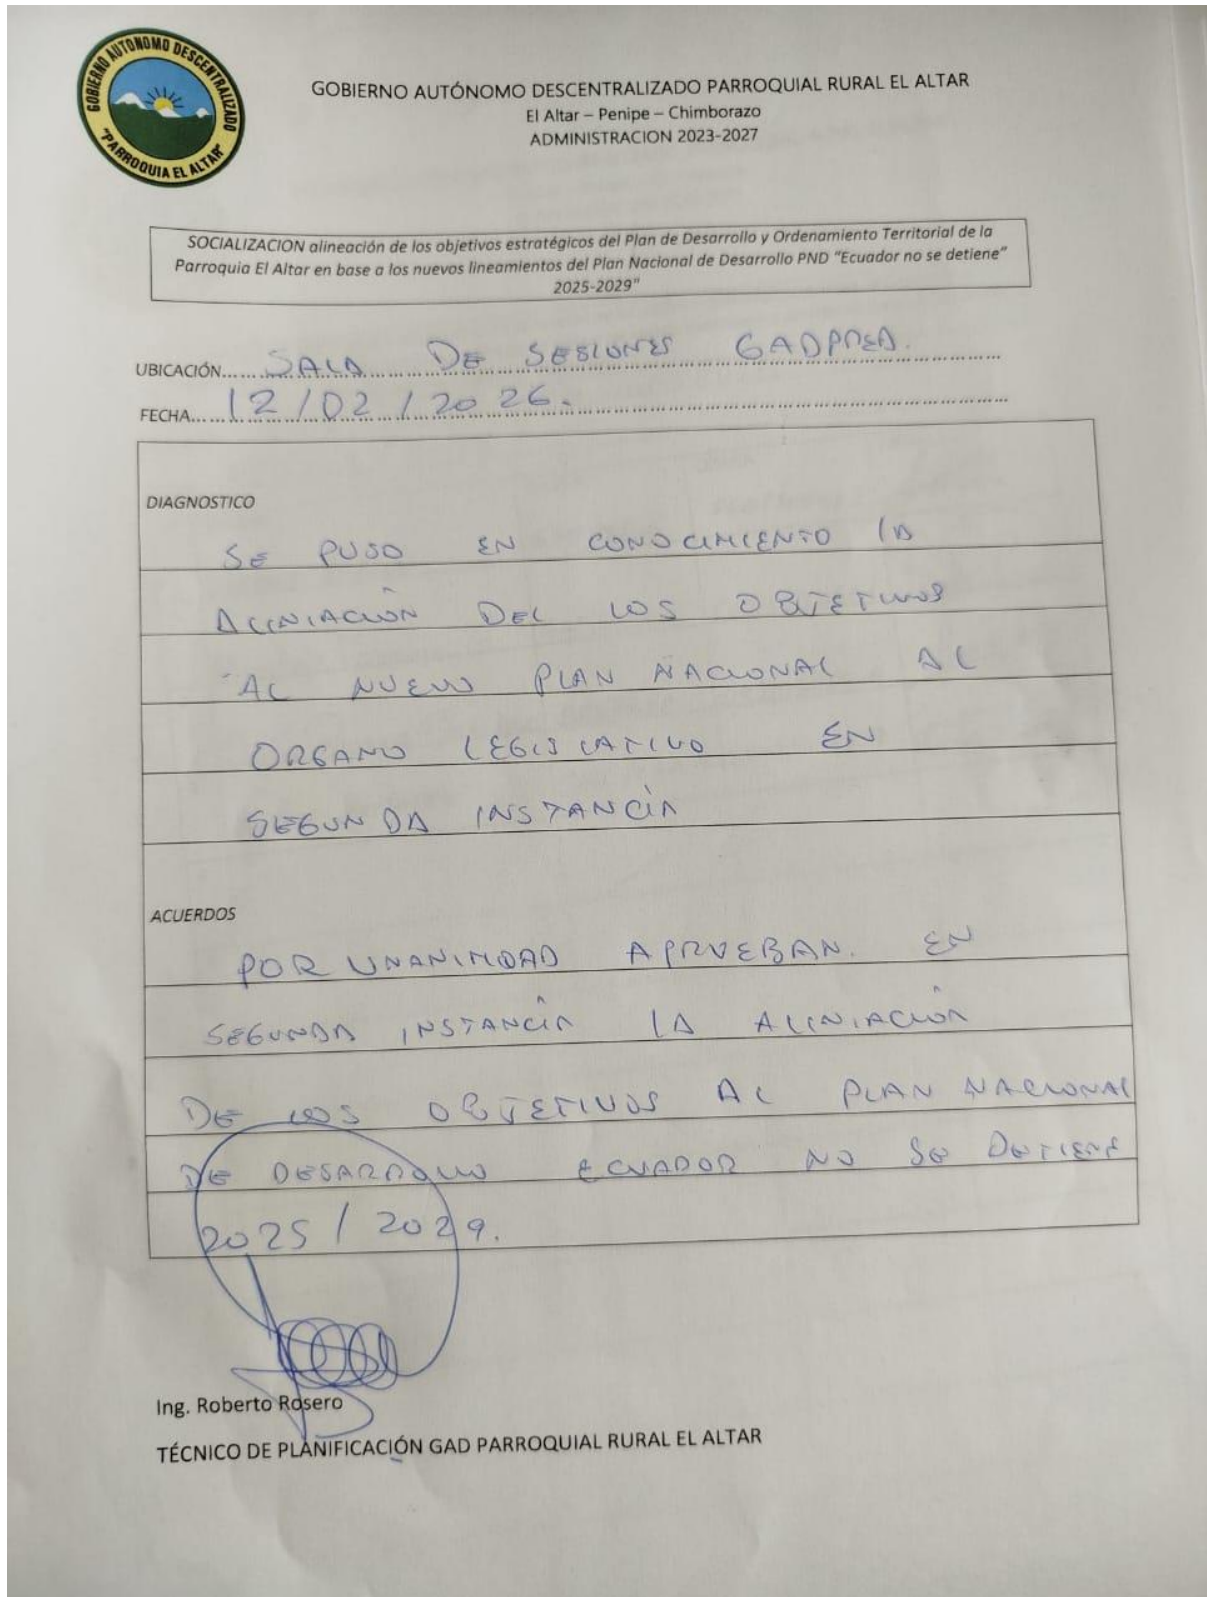 GOBIERNO AUTONOMO DESCENTRALIZADO
"PARROQUIA EL ALTAR"
GOBIERNO AUTÓNOMO DESCENTRALIZADO PARROQUIAL RURAL EL ALTAR
El Altar – Penipe – Chimborazo
ADMINISTRACION 2023-2027
SOCIALIZACION alineación de los objetivos estratégicos del Plan de Desarrollo y Ordenamiento Territorial de la
Parroquia El Altar en base a los nuevos lineamientos del Plan Nacional de Desarrollo PND "Ecuador no se detiene"
2025-2029"
UBICACIÓN...... SALA DE SESIONES GADPREA.
FECHA...... 12/02/2026.
DIAGNOSTICO
SE PUSO EN CONOCIMIENTO LA
ALINIACIÓN DEL LOS OBJETIVOS
AL NUEVO PLAN NACIONAL AL
ORGANO LEGISLATIVO EN
SEGUNDA INSTANCIA
ACUERDOS
POR UNANIMIDAD APRUEBAN. EN
SEGUNDA INSTANCIA LA ALINIACIÓN
DE LOS OBJETIVOS AL PLAN NACIONAL
DE DESARROLLO ECUADOR NO SE DETIENE
2025/2029.
Ing. Roberto Rosero
TÉCNICO DE PLANIFICACIÓN GAD PARROQUIAL RURAL EL ALTAR